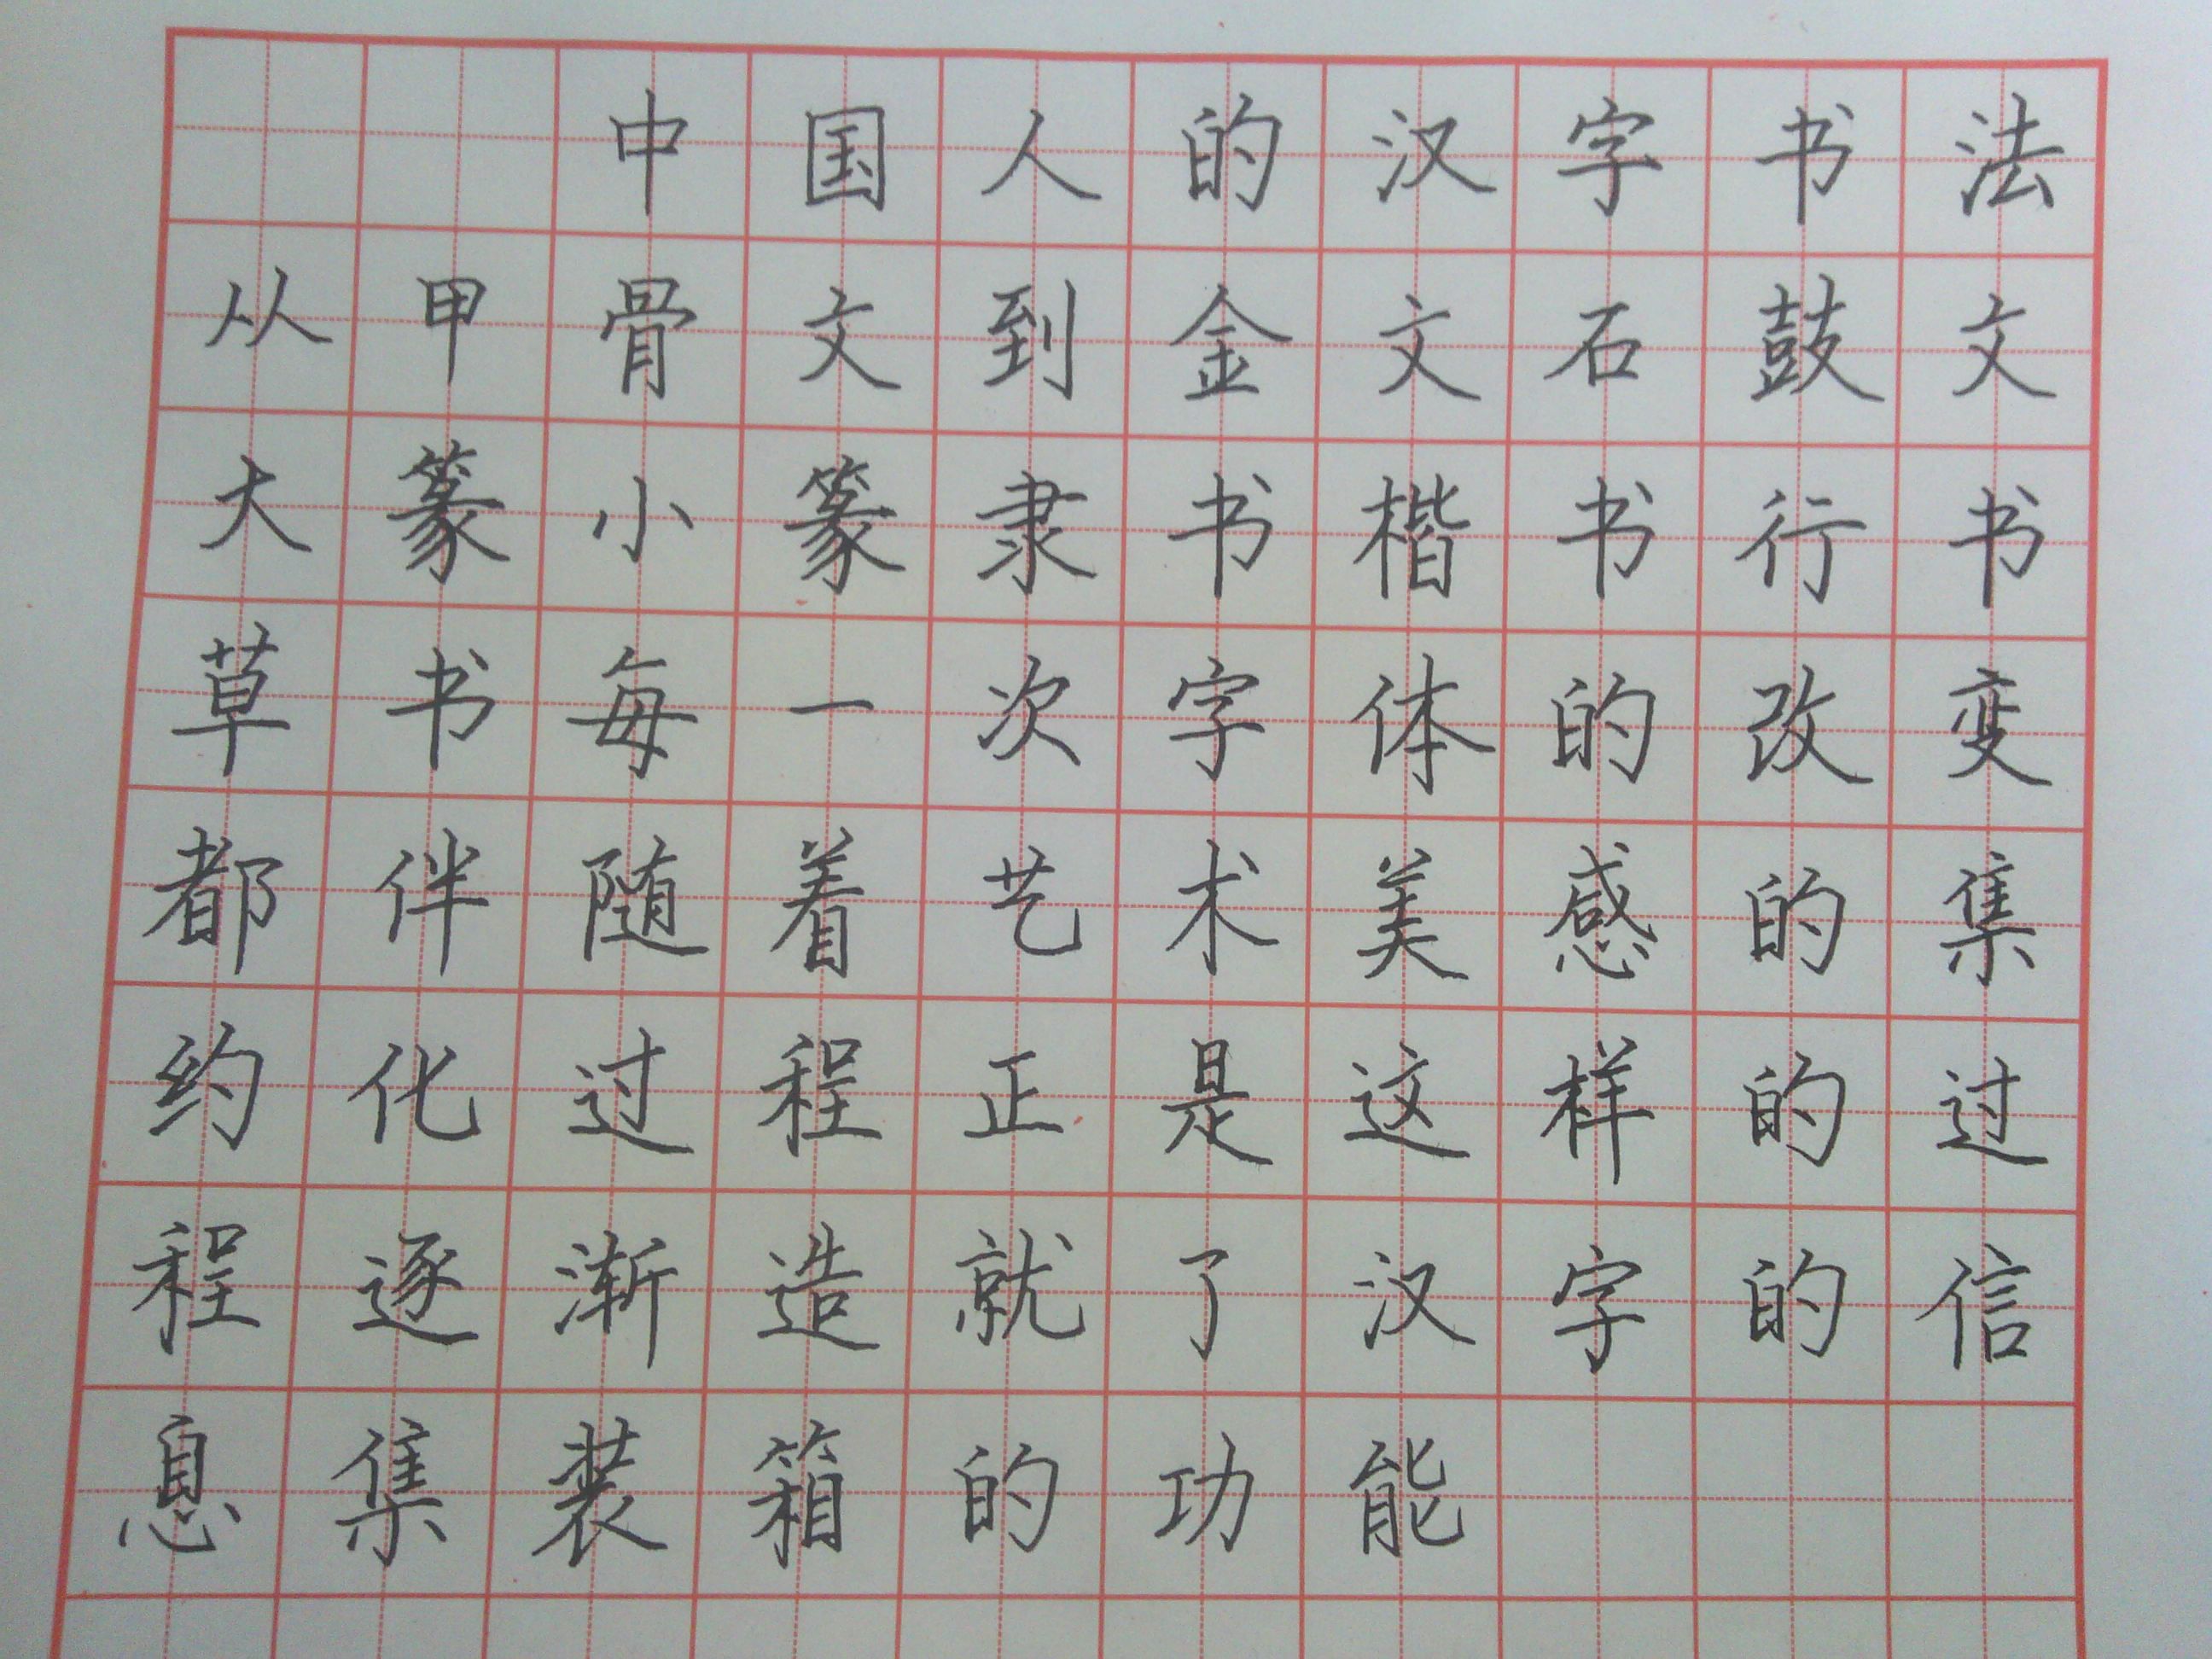 中国人的汉字书法
从甲骨文到金文石鼓文
大篆小篆隶书楷书行书
草书每一次字体的改变
都伴随着艺术美感的集
约化过程正是这样的过
程逐渐造就了汉字的信
息集装箱的功能